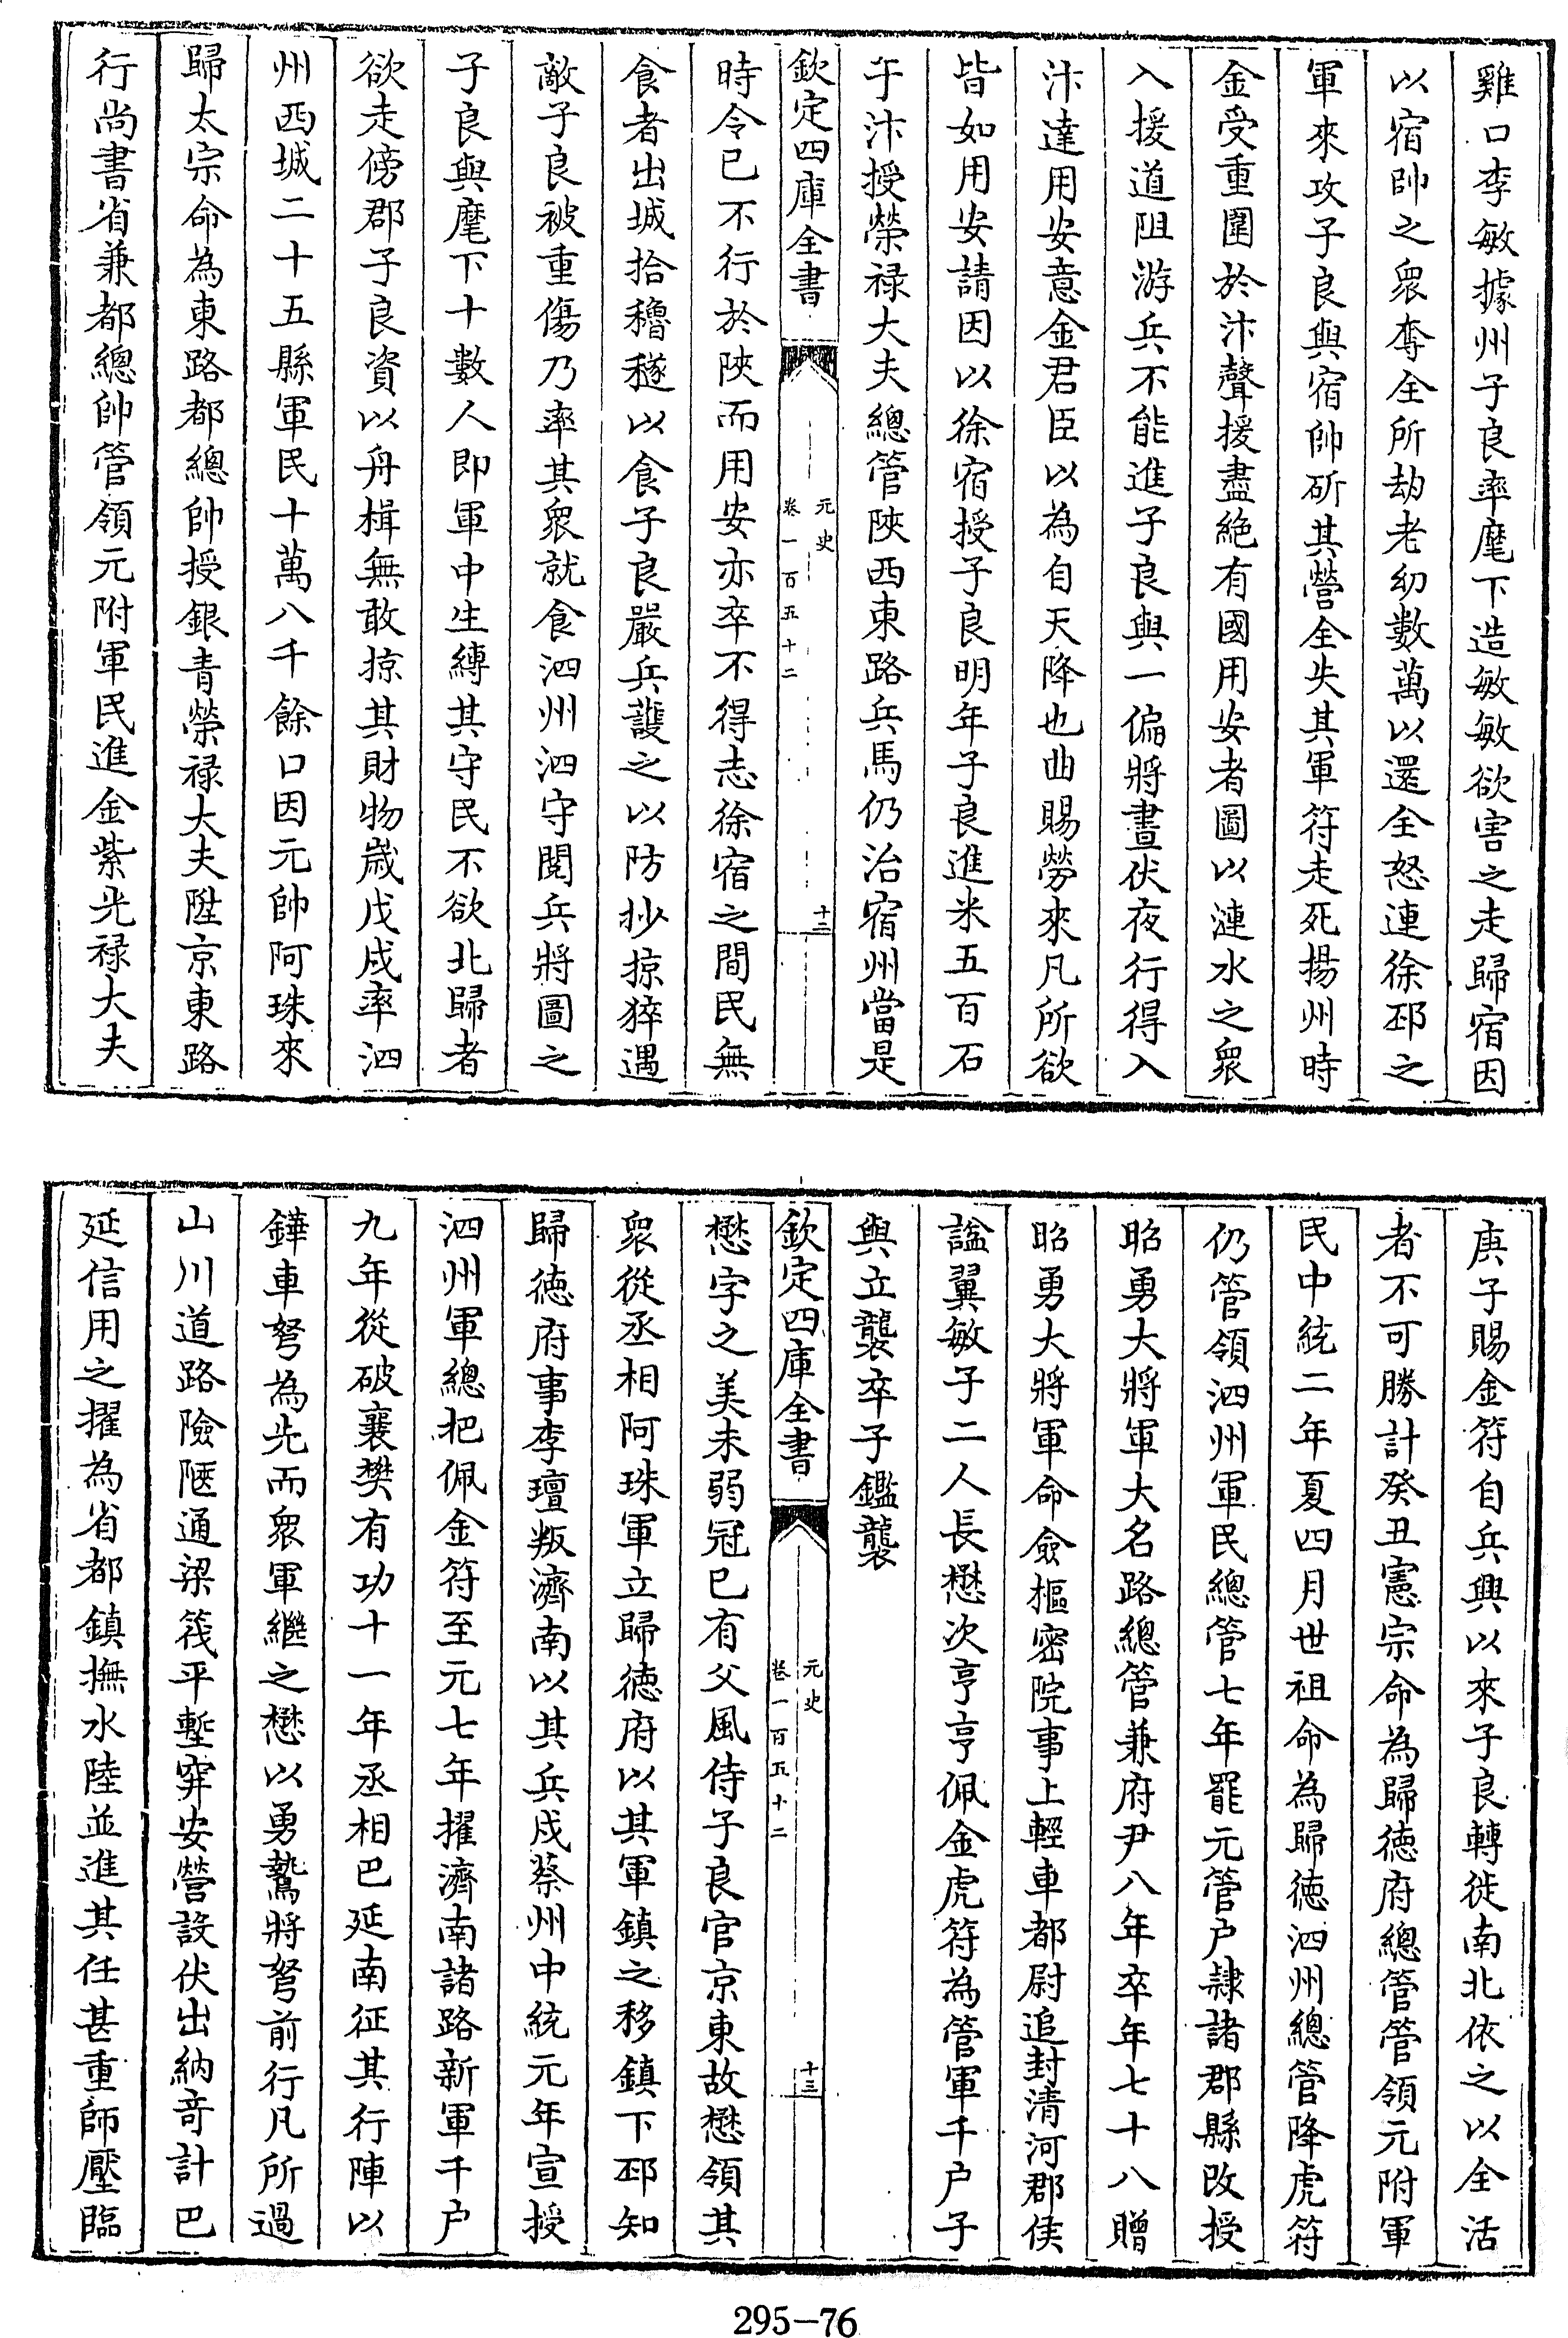 雞口李敏據州子良率麾下造敏敏欲害之走歸宿因
以宿帥之衆奪全所劫老幼數萬以還全怒連徐邳之
軍來攻子良與宿帥斫其營全失其軍符走死揚州時
金受重圍於汴聲援盡絶有國用安者圖以漣水之衆
入援道阻游兵不能進子良與一偏將晝伏夜行得入
汴達用安意金君臣以為自天降也曲賜勞來凡所欲
皆如用安請因以徐宿授子良明年子良進米五百石
于汴授榮禄大夫總管陜西東路兵馬仍治宿州當是
欽定四庫全書
元史
卷一百五十二
十二
時令已不行於陜而用安亦卒不得志徐宿之間民無
食者出城拾穭穟以食子良嚴兵䕶之以防抄掠猝遇
敵子良被重傷乃率其衆就食泗州泗守閱兵將圖之
子良與麾下十數人即軍中生縛其守民不欲北歸者
欲走傍郡子良資以舟楫無敢掠其財物嵗戊戌率泗
州西城二十五縣軍民十萬八千餘口因元帥阿珠來
歸太宗命為東路都總帥授銀青榮禄大夫陞京東路
行尚書省兼都總帥管領元附軍民進金紫光禄大夫
庚子賜金符自兵興以來子良轉徙南北依之以全活
者不可勝計癸丑憲宗命為歸徳府總管管領元附軍
民中統二年夏四月世祖命為歸徳泗州總管降虎符
仍管領泗州軍民總管七年罷元管户隷諸郡縣改授
昭勇大將軍大名路總管兼府尹八年卒年七十八贈
昭勇大將軍命僉樞密院事上輕車都尉追封清河郡侯
諡翼敏子二人長懋次亨亨佩金虎符為管軍千户子
與立襲卒子鑑襲
欽定四庫全書
元史
卷一百五十二
十三
懋字之美未弱冠已有父風侍子良官京東故懋領其
衆從丞相阿珠軍立歸徳府以其軍鎮之移鎮下邳知
歸徳府事李璮叛濟南以其兵戍蔡州中統元年宣授
泗州軍總把佩金符至元七年擢濟南諸路新軍千户
九年從破襄樊有功十一年丞相巴延南征其行陣以
鏵車弩為先而衆軍繼之懋以勇鷙將弩前行凡所過
山川道路險陿通梁筏平塹穽安營設伏出納竒計巴
延信用之擢為省都鎮撫水陸並進其任甚重師壓臨
295-76